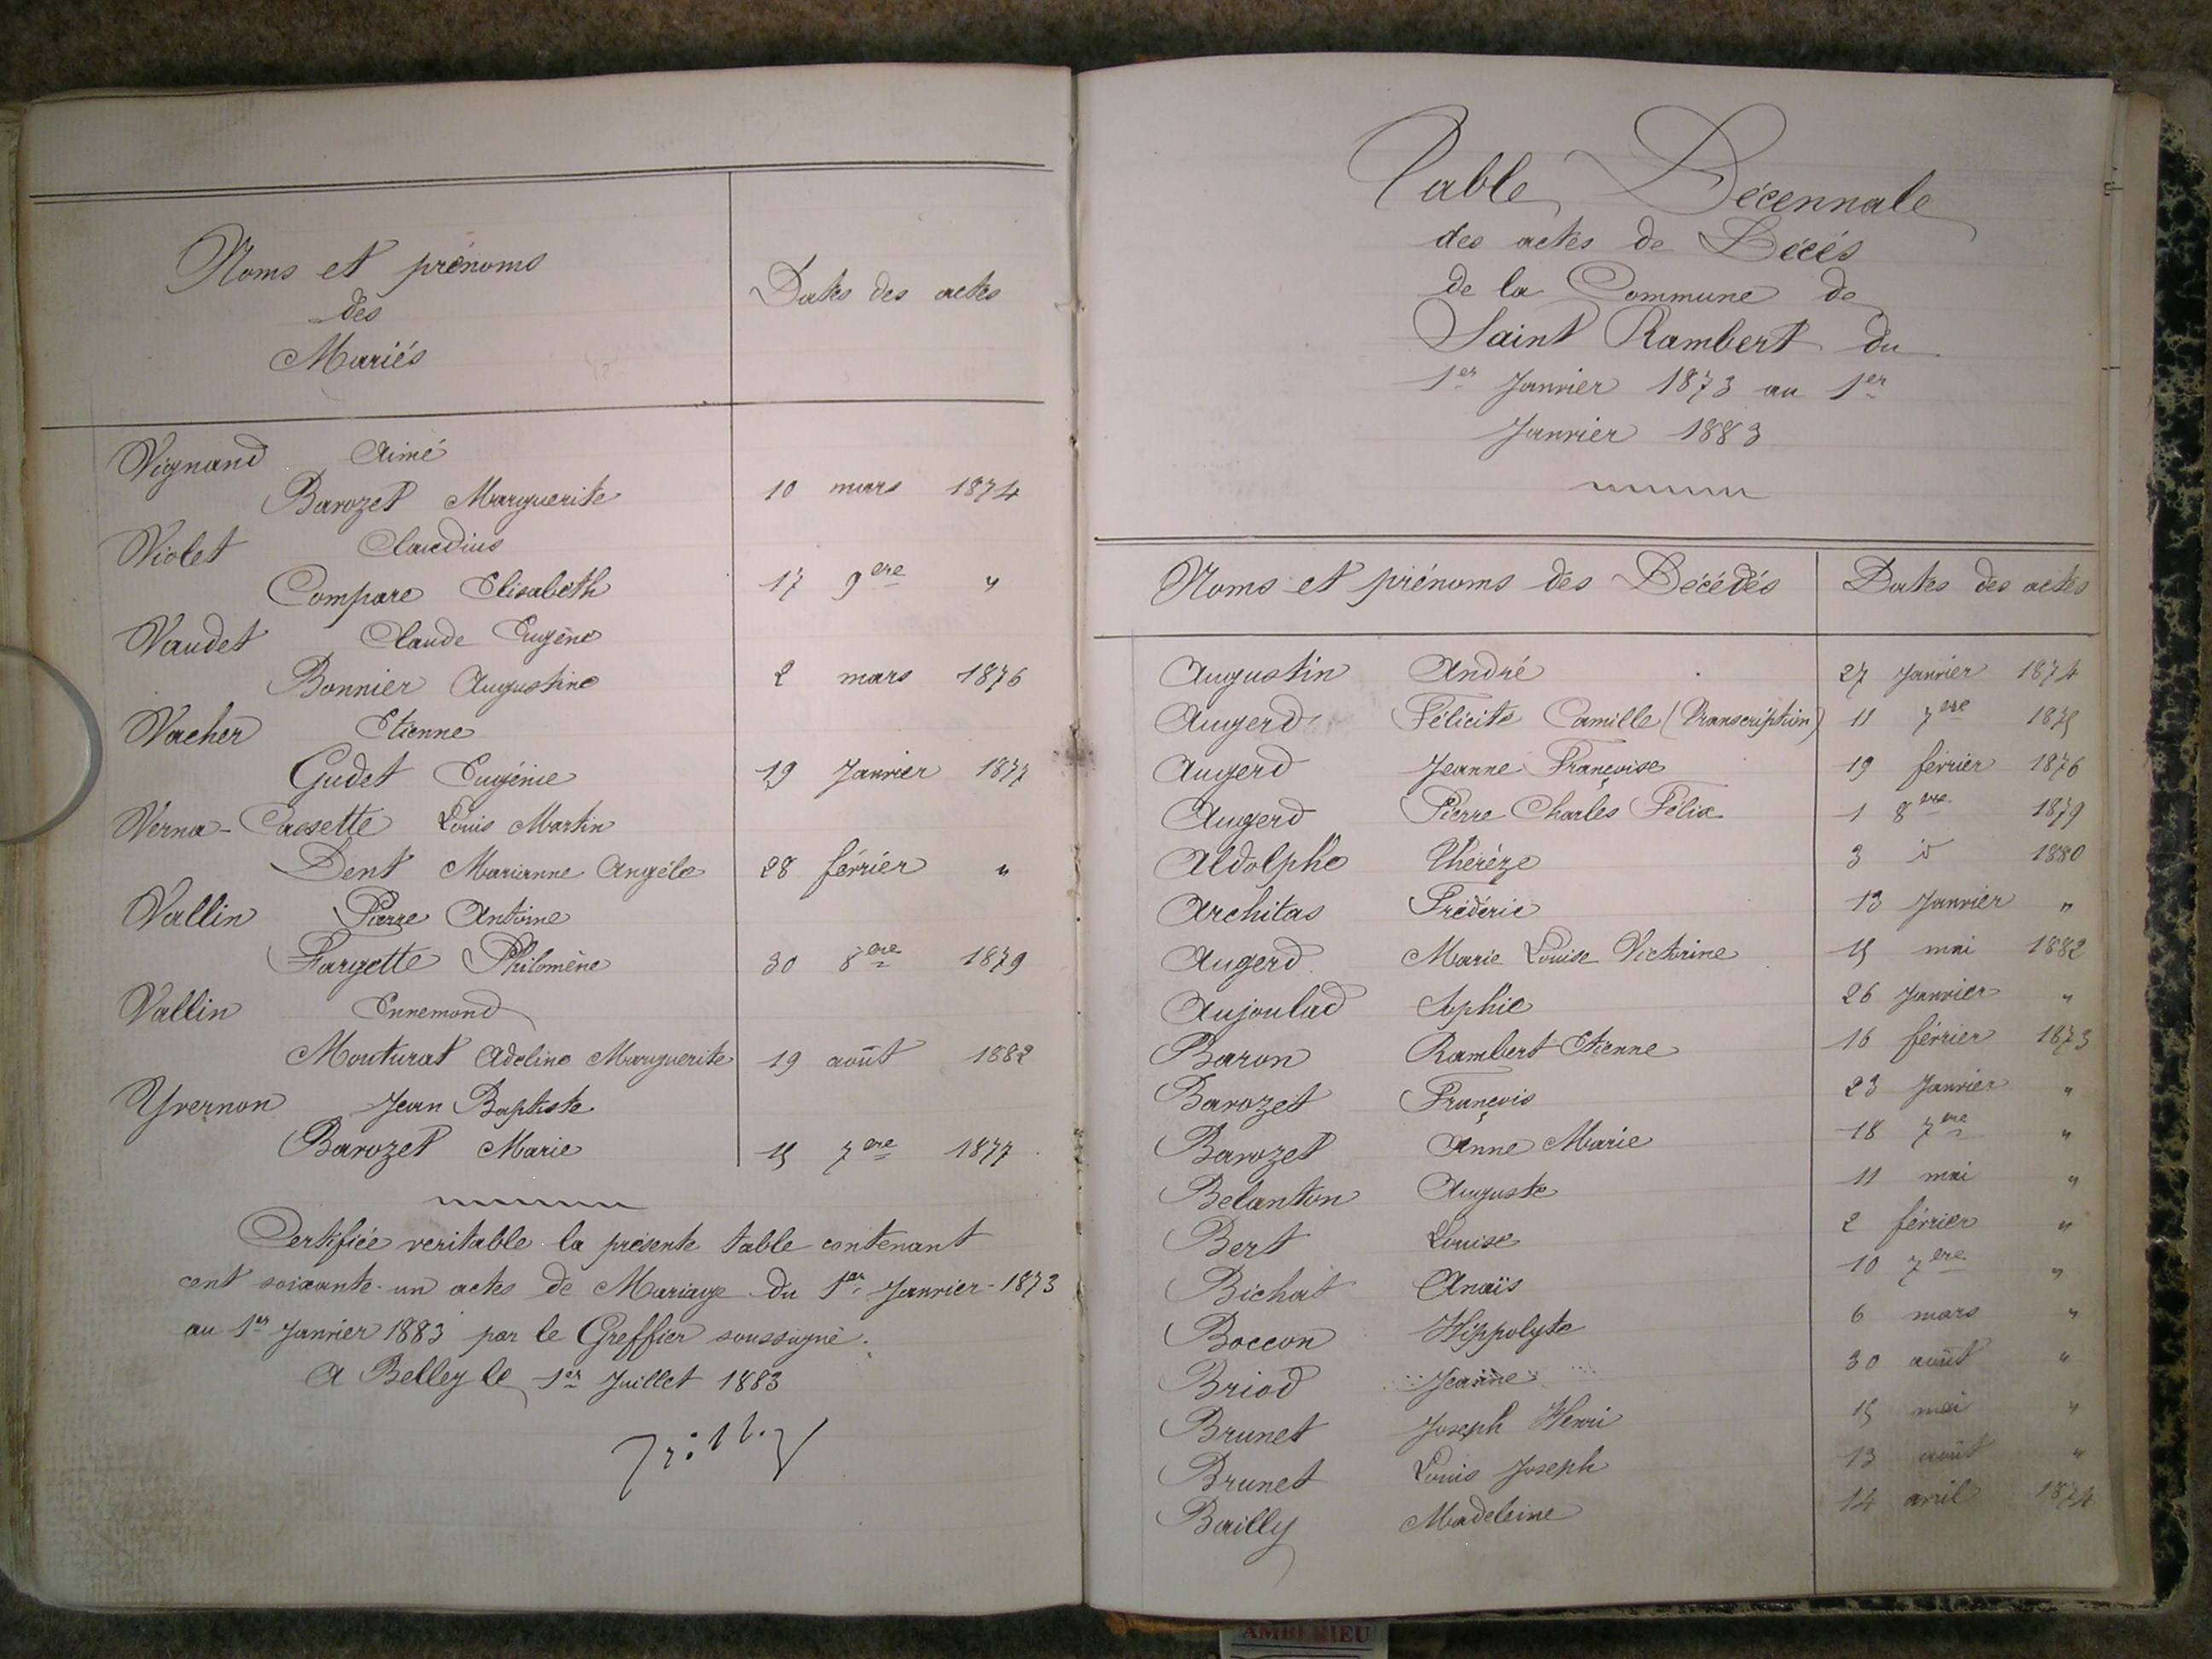 Noms et prénoms
des
Mariés
Dates des actes
Vignand Aimé
Barozet Marguerite 10 mars 1874
Violet Claudius
Compare Elisabeth 17 9ere "
Vaudet Claude Eugène
Bonnier Augustine 2 mars 1876
Vacher Etienne
Gudet Eugénie 19 Janvier 1877
Verna-Cassette Louis Martin
Dent Marianne Angéle 28 février "
Vallin Pierre Antoine
Fargette Philomène 30 8ere 1879
Vallin Ennemond
Mouturat Adeline Marguerite 19 août 1882
Yvernon Jean Baptiste
Barozet Marie 15 7ere 1877
Certifiée veritable la présente table contenant
cent soixante-un actes de Mariage du 1er Janvier-1873
au 1er Janvier 1883 par le Greffier soussigné.
A Belley le 1er Juillet 1883
Table Décennale
des actes de Décés
de la Commune de
Saint Rambert du
1er Janvier 1873 au 1er
Janvier 1883
Noms et prénoms des Décédés Dates des actes
Augustin André 27 Janvier 1874
Augerd Félicité Camille (Transcription) 11 7ere 1875
Augerd Jeanne Françoise 19 février 1876
Augerd Pierre Charles Félix 1 8ere 1879
Aldolphe Thérèze 3 id 1880
Architas Frédéric 13 Janvier "
Augerd Marie Louise Victorine 15 mai 1882
Aujoulad Sophie 26 Janvier "
Baron Rambert Etienne 16 février 1873
Barozet François 23 Janvier "
Barozet Anne Marie 18 7ere "
Belanton Auguste 11 mai "
Bert Louise 2 février "
Bichat Anaïs 10 7ere "
Boccon Hippolyte 6 mars "
Briod Jeanne 30 août "
Brunet Joseph Henri 15 mai "
Brunet Louis Joseph 13 août "
Bailly Madeleine 14 avril 1874
AMBERIEU